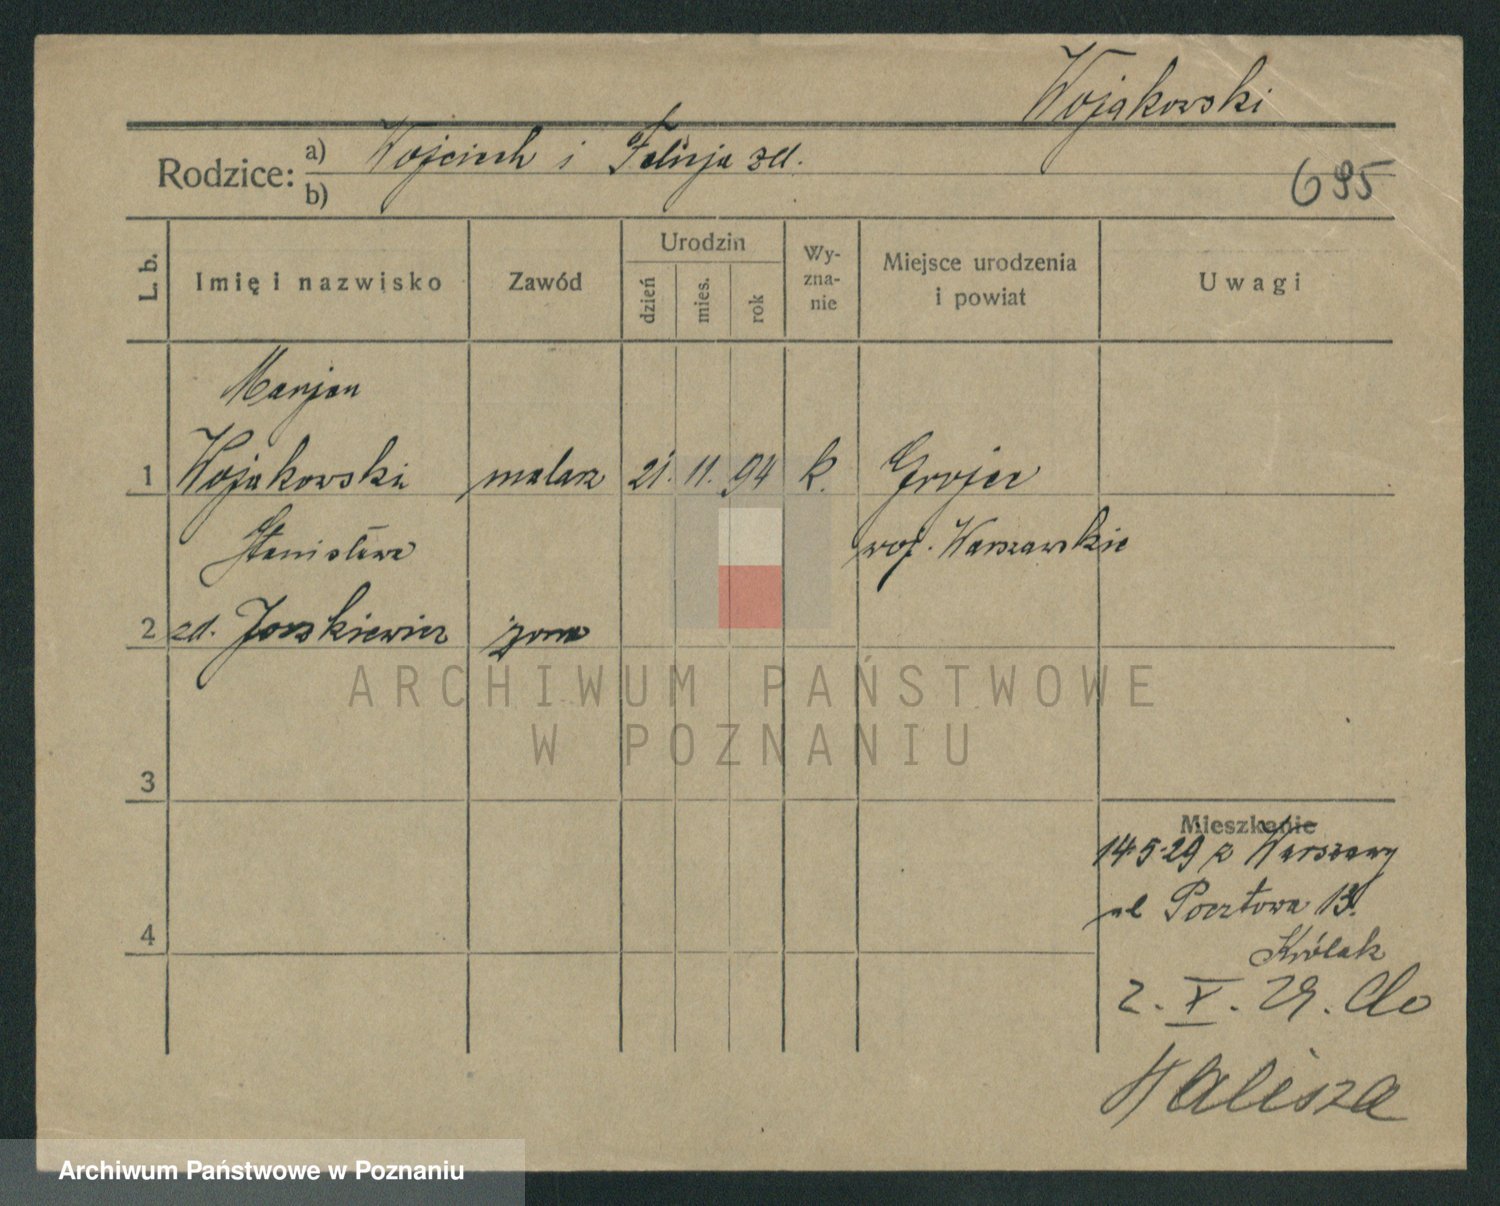 Wojakowski
Rodzice: a) Wojciech i Felicja zd.
b)
695
L. b.
Imię i nazwisko
Zawód
Urodzin
dzień
mies.
rok
Wy-
zna-
nie
Miejsce urodzenia
i powiat
Uwagi
Marjan
1 Wojakowski malarz 21. 11. 94 k. Grojec
Stanisława woj. Warszawskie
2 zd. żona
ARCHIWUM PAŃSTWOWE
W POZNANIU
3
Mieszkanie
14.5.29 z Warszawy
ul Pocztowa 13.
4
Królak
2. X. 29. do
Kalisza
Archiwum Państwowe w Poznaniu